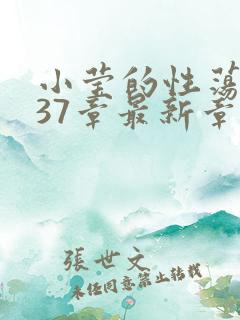 小莹的性荡
37章最新章
張世文
未经同意禁止转载